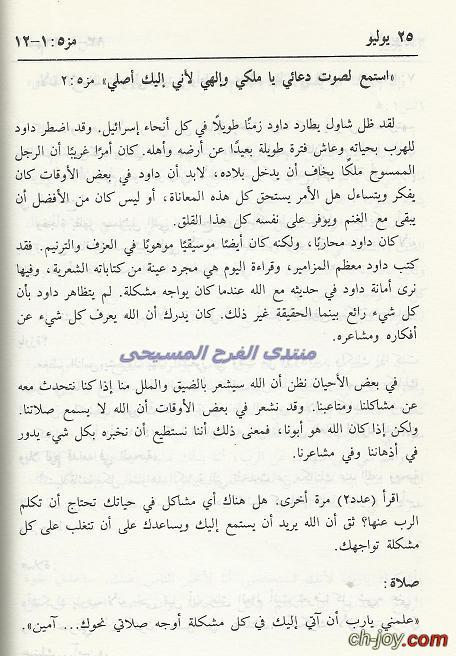 ٢٥ يوليو
مز٥:١-١٢
«استمع لصوت دعائي يا ملكي وإلهي لأني إليك أصلي» مز٥:٢
لقد ظل شاول يطارد داود زمنًا طويلًا في كل أنحاء إسرائيل. وقد اضطر داود
للهرب بحياته وعاش فترة طويلة بعيدًا عن أرضه وأهله. كان أمرًا غريبًا أن الرجل
الممسوح ملكًا يخاف أن يدخل بلاده، لابد أن داود في بعض الأوقات كان
يفكر ويتساءل هل الأمر يستحق كل هذه المعاناة، أو ليس كان من الأفضل أن
يبقى مع الغنم ويوفر على نفسه كل هذا القلق.
كان داود محاربًا، ولكنه كان أيضًا موسيقيًا موهوبًا في العزف والترنيم. فقد
كتب داود معظم المزامير، وقراءة اليوم هي مجرد عينة من كتاباته الشعرية، وفيها
نرى أمانة داود في حديثه مع الله عندما كان يواجه مشكلة. لم يتظاهر داود بأن
كل شيء رائع بينما الحقيقة غير ذلك. كان يدرك أن الله يعرف كل شيء عن
أفكاره ومشاعره.
منتدى الفرح المسيحى
في بعض الأحيان نظن أن الله سيشعر بالضيق والملل منا إذا كنا نتحدث معه
عن مشاكلنا ومتاعبنا. وقد نشعر في بعض الأوقات أن الله لا يسمع صلاتنا.
ولكن إذا كان الله هو أبونا، فمعنى ذلك أننا نستطيع أن نخبره بكل شيء يدور
في أذهاننا وفي مشاعرنا.
اقرأ (عدد٢) مرة أخرى. هل هناك أي مشاكل في حياتك تحتاج أن تكلم
الرب عنها؟ ثق أن الله يريد أن يستمع إليك ويساعدك على أن تتغلب على كل
مشكلة تواجهك.
صلاة:
«علمني يارب أن آتي إليك في كل مشكلة أوجه صلاتي نحوك... آمين».
ch-joy.com